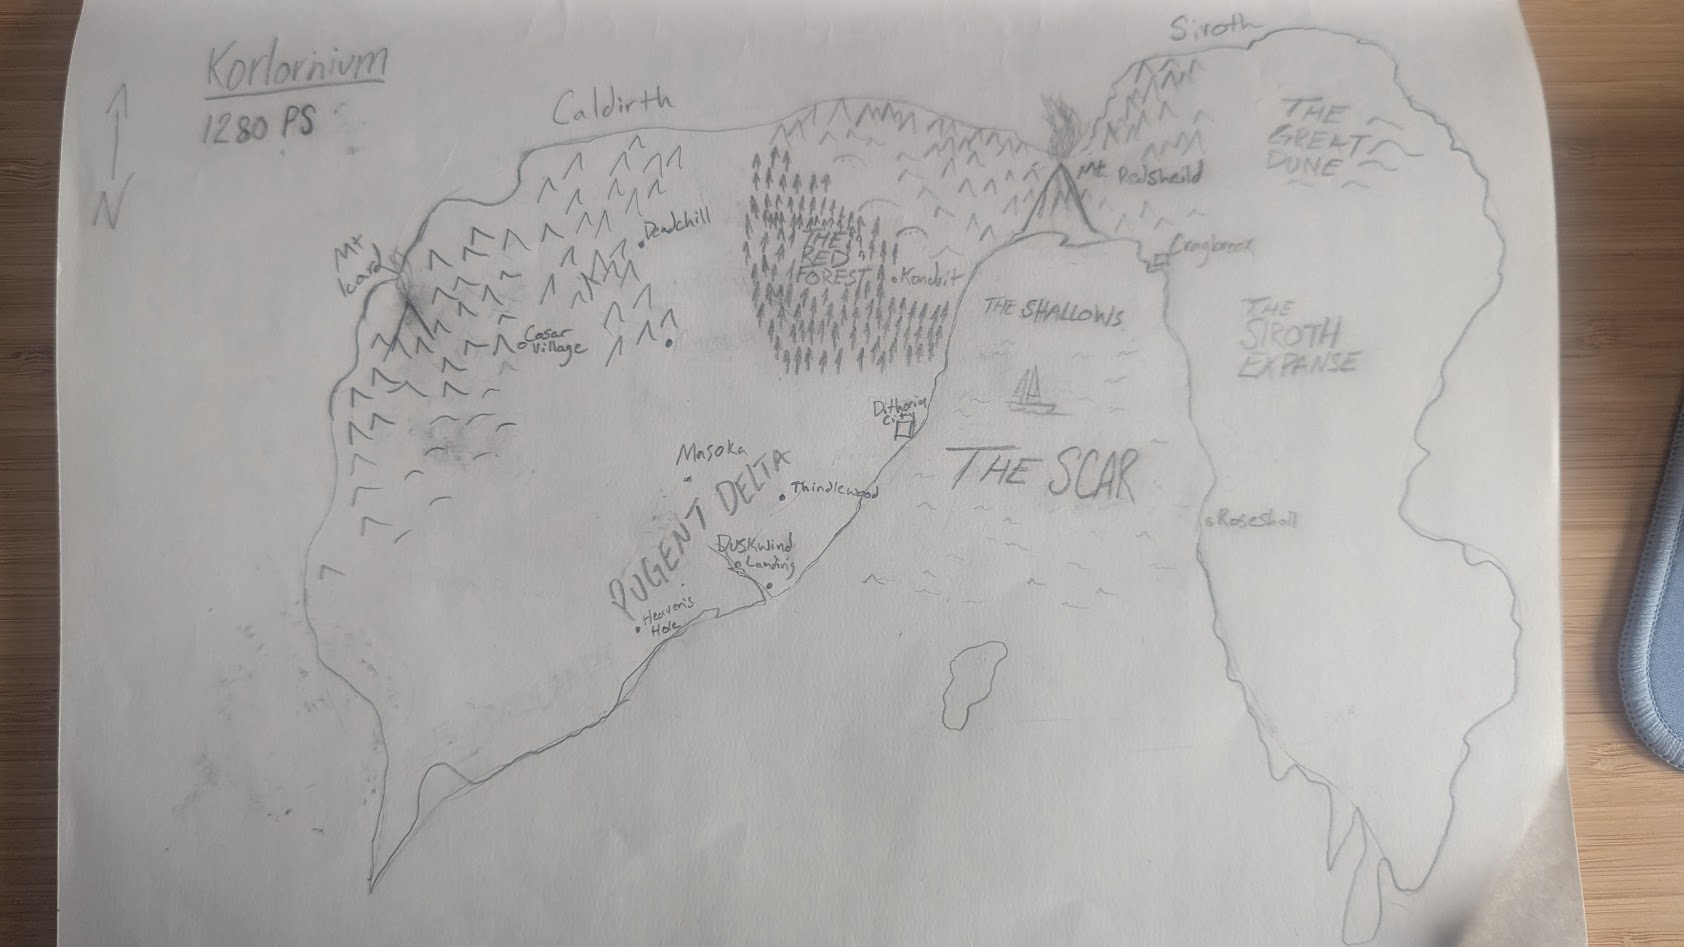 Korlornium
1280 PS
N
Caldirth
Siroth
THE
GREAT
DUNE
Mt. Redsheild
Mt
Icard
Deadchill
THE
RED
FOREST
Konduit
Cragbrook
THE SHALLOWS
THE
SIROTH
EXPANSE
Casar
Village
Dithoria
City
Masoka
THE SCAR
PUGENT DELTA
Thindlewood
Roseshall
Duskwind
Landing
Heaven's
Hole